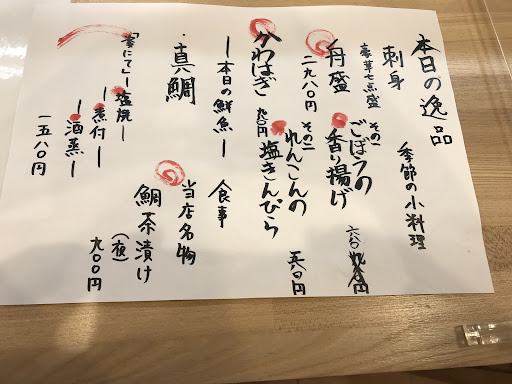 本日の逸品
刺身
豪華七点盛
舟盛
二九八〇円
かわはぎ
季節の小料理
その一
ごぼうの
香り揚げ
六八〇
円
その二
れんこんの
塩きんぴら
円
ー本日の鮮魚ー
真鯛
「姿にて」ー塩焼ー
ー煮付ー
ー酒蒸ー
一五八〇円
食事
当店名物
鯛茶漬け
(夜)
九〇〇円